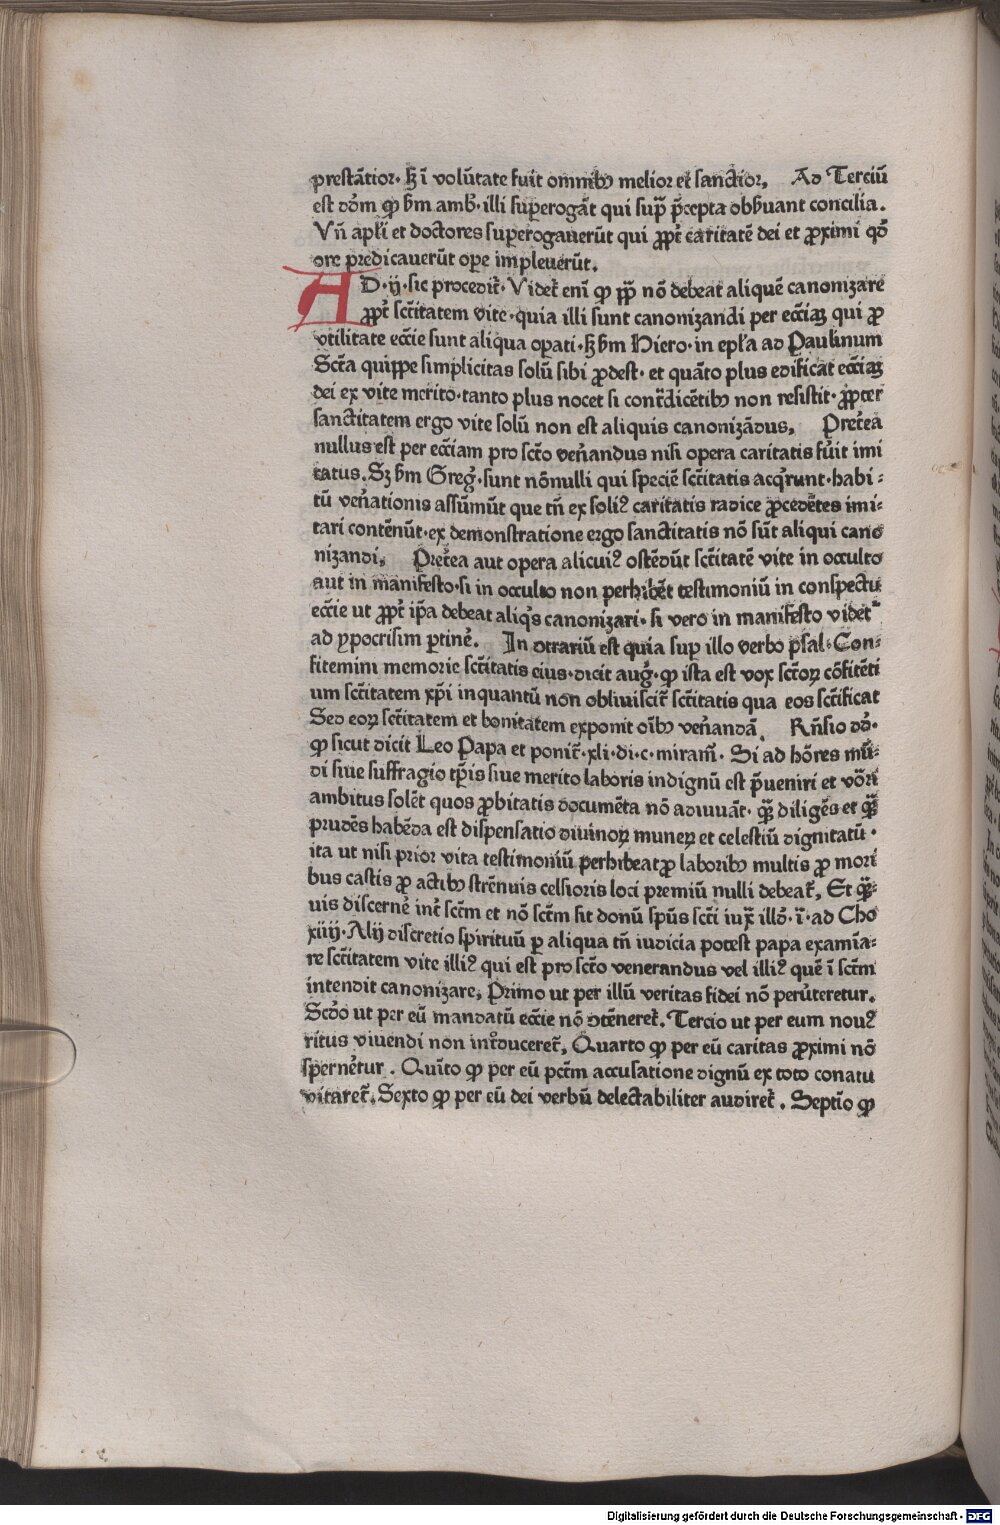 prestātior· hꝫ ī volūtate fuit omnibꝰ melior et sanctior, Ad Terciū
est dōm ꝙ bm̄ amb̄· illi suꝑerogāt qui sup̄ p̄cepta obẜuant concilia.
Vn̄ apl̄i et doctores suꝑerogauerūt qui ꝓpt̄ caritatē dei et ꝓximi qd̄
ore predicauerūt oꝑe impleuerūt.
AD·ij·sic procedit̄· Videt̄ eni ꝙ pp̄ nō debeat aliquē canonizare
ꝓpt̄ sc̄titatem vite·quia illi sunt canonizandi per ecc̄iaꝫ qui ꝓ
vtilitate ecc̄ie sunt aliqua oꝑati· hꝫ bm̄ Hiero·in epl̄a ad Paulinum
Sc̄ta quippe simplicitas solū sibi ꝓdest· et quāto plus edificat ecc̄iaꝫ
dei ex vite merito·tanto plus nocet si cont̄dicētibꝰ non resistit· ꝓpter
sanctitatem ergo vite solū non est aliquis canonizādus, Pret̄ea
nullus est per ecc̄iam pro sc̄to ven̄andus nisi opera caritatis fūit imi
tatus. Sꝫ bm̄ Greḡ·sunt nōnulli qui speciē sc̄titatis acq̄runt·habi⸗
tū ven̄ationis assūmūt que tn̄ ex soliꝰ caritatis radice ꝓcedētes imi⸗
tari contēnūt·ex demonstratione ergo sanctitatis nō sūt aliqui cano
nizandi, Pret̄ea aut opera alicuiꝰ ostēdūt sc̄titatē vite in occulto
aut in manifesto·si in occulto non perhibēt testimoniū in conspectu
ecc̄ie ut ꝓpt̄ ip̄a debeat aliq̄s canonizari· si vero in manifesto videt̄
ad ypocrisim ꝑtinē. In ꝯtrariū est quia suꝑ illo verbo psal· Con⸗
fitemini memorie sc̄titatis eius·dicit auḡ·ꝙ ista est vox sc̄toꝝ cōfitēti
um sc̄titatem xp̄i inquantū non obliuiscit̄ sc̄titatis qua eos sc̄tificat
Sed eoꝝ sc̄titatem et bonitatem exponit oībꝰ ven̄andā, Rn̄sio dd̄·
ꝙ sicut dicit Leo Papa et ponit̄·xli·di·c·miram̄· Si ad hōres mū⸗
di siue suffragio tp̄is siue merito laboris indignū est p̄ueniri et vōri
ambitus solēt quos ꝓbitatis documēta nō adiuuāt· qꝫ̄ diligēs et qꝫ̄
prudēs habēda est dispensatio diuinoꝝ muneꝝ et celestiū dignitatū·
ita ut nisi prior vita testimoniū perhibeat ꝓ laboribꝰ multis ꝓ mori
bus castis ꝓ actibꝰ strēnuis celsioris loci premiū nulli debeat̄, Et qꝫ̄⸗
uis discernē int̄ sc̄tm et nō sc̄tm sit donū spūs sc̄ti iux̄ illd̄·ī·ad Cho
xiiij·Alij discretio spirituū ꝑ aliqua tn̄ iudicia potest papa examīa⸗
re sc̄titatem vite illiꝰ qui est pro sc̄to venerandus vel illiꝰ quē ī sc̄tm
intendit canonizare, Primo ut per illū veritas fidei nō perūteretur.
Scd̄o ut per eū mandatū ecc̄ie nō ꝯtēneret̄. Tercio ut per eum nouꝰ
ritus viuendi non int̄duceret̄, Quarto ꝙ per eū caritas ꝓximi nō
spernētur. Quīto ꝙ per eū pctm̄ accusatione dignū ex toto conatu
vitaret̄. Sexto ꝙ per eū dei verbū delectabiliter audiret̄. Septīo ꝙ
Digitalisierung gefördert durch die Deutsche Forschungsgemeinschaft - DFG